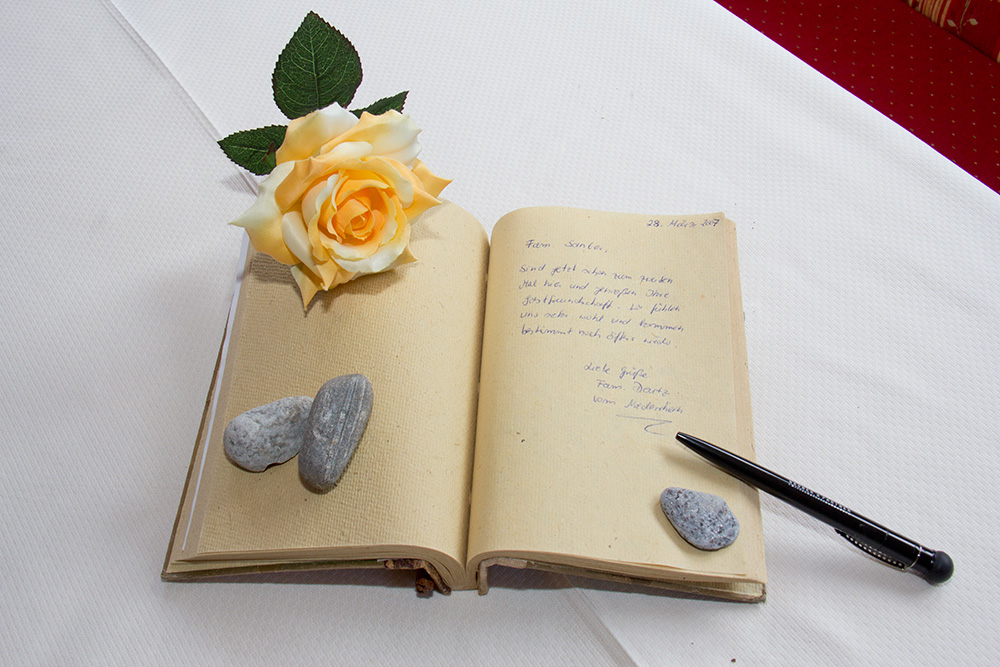 28. März 2007
Fam. Santer,
Sind jetzt schon zum zweiten
Mal hier und genießen Ihre
Gastfreundschaft. Wir fühlen
uns sehr wohl und kommen
bestimmt noch öfters wieder
Liebe Grüße
Fam.
vom